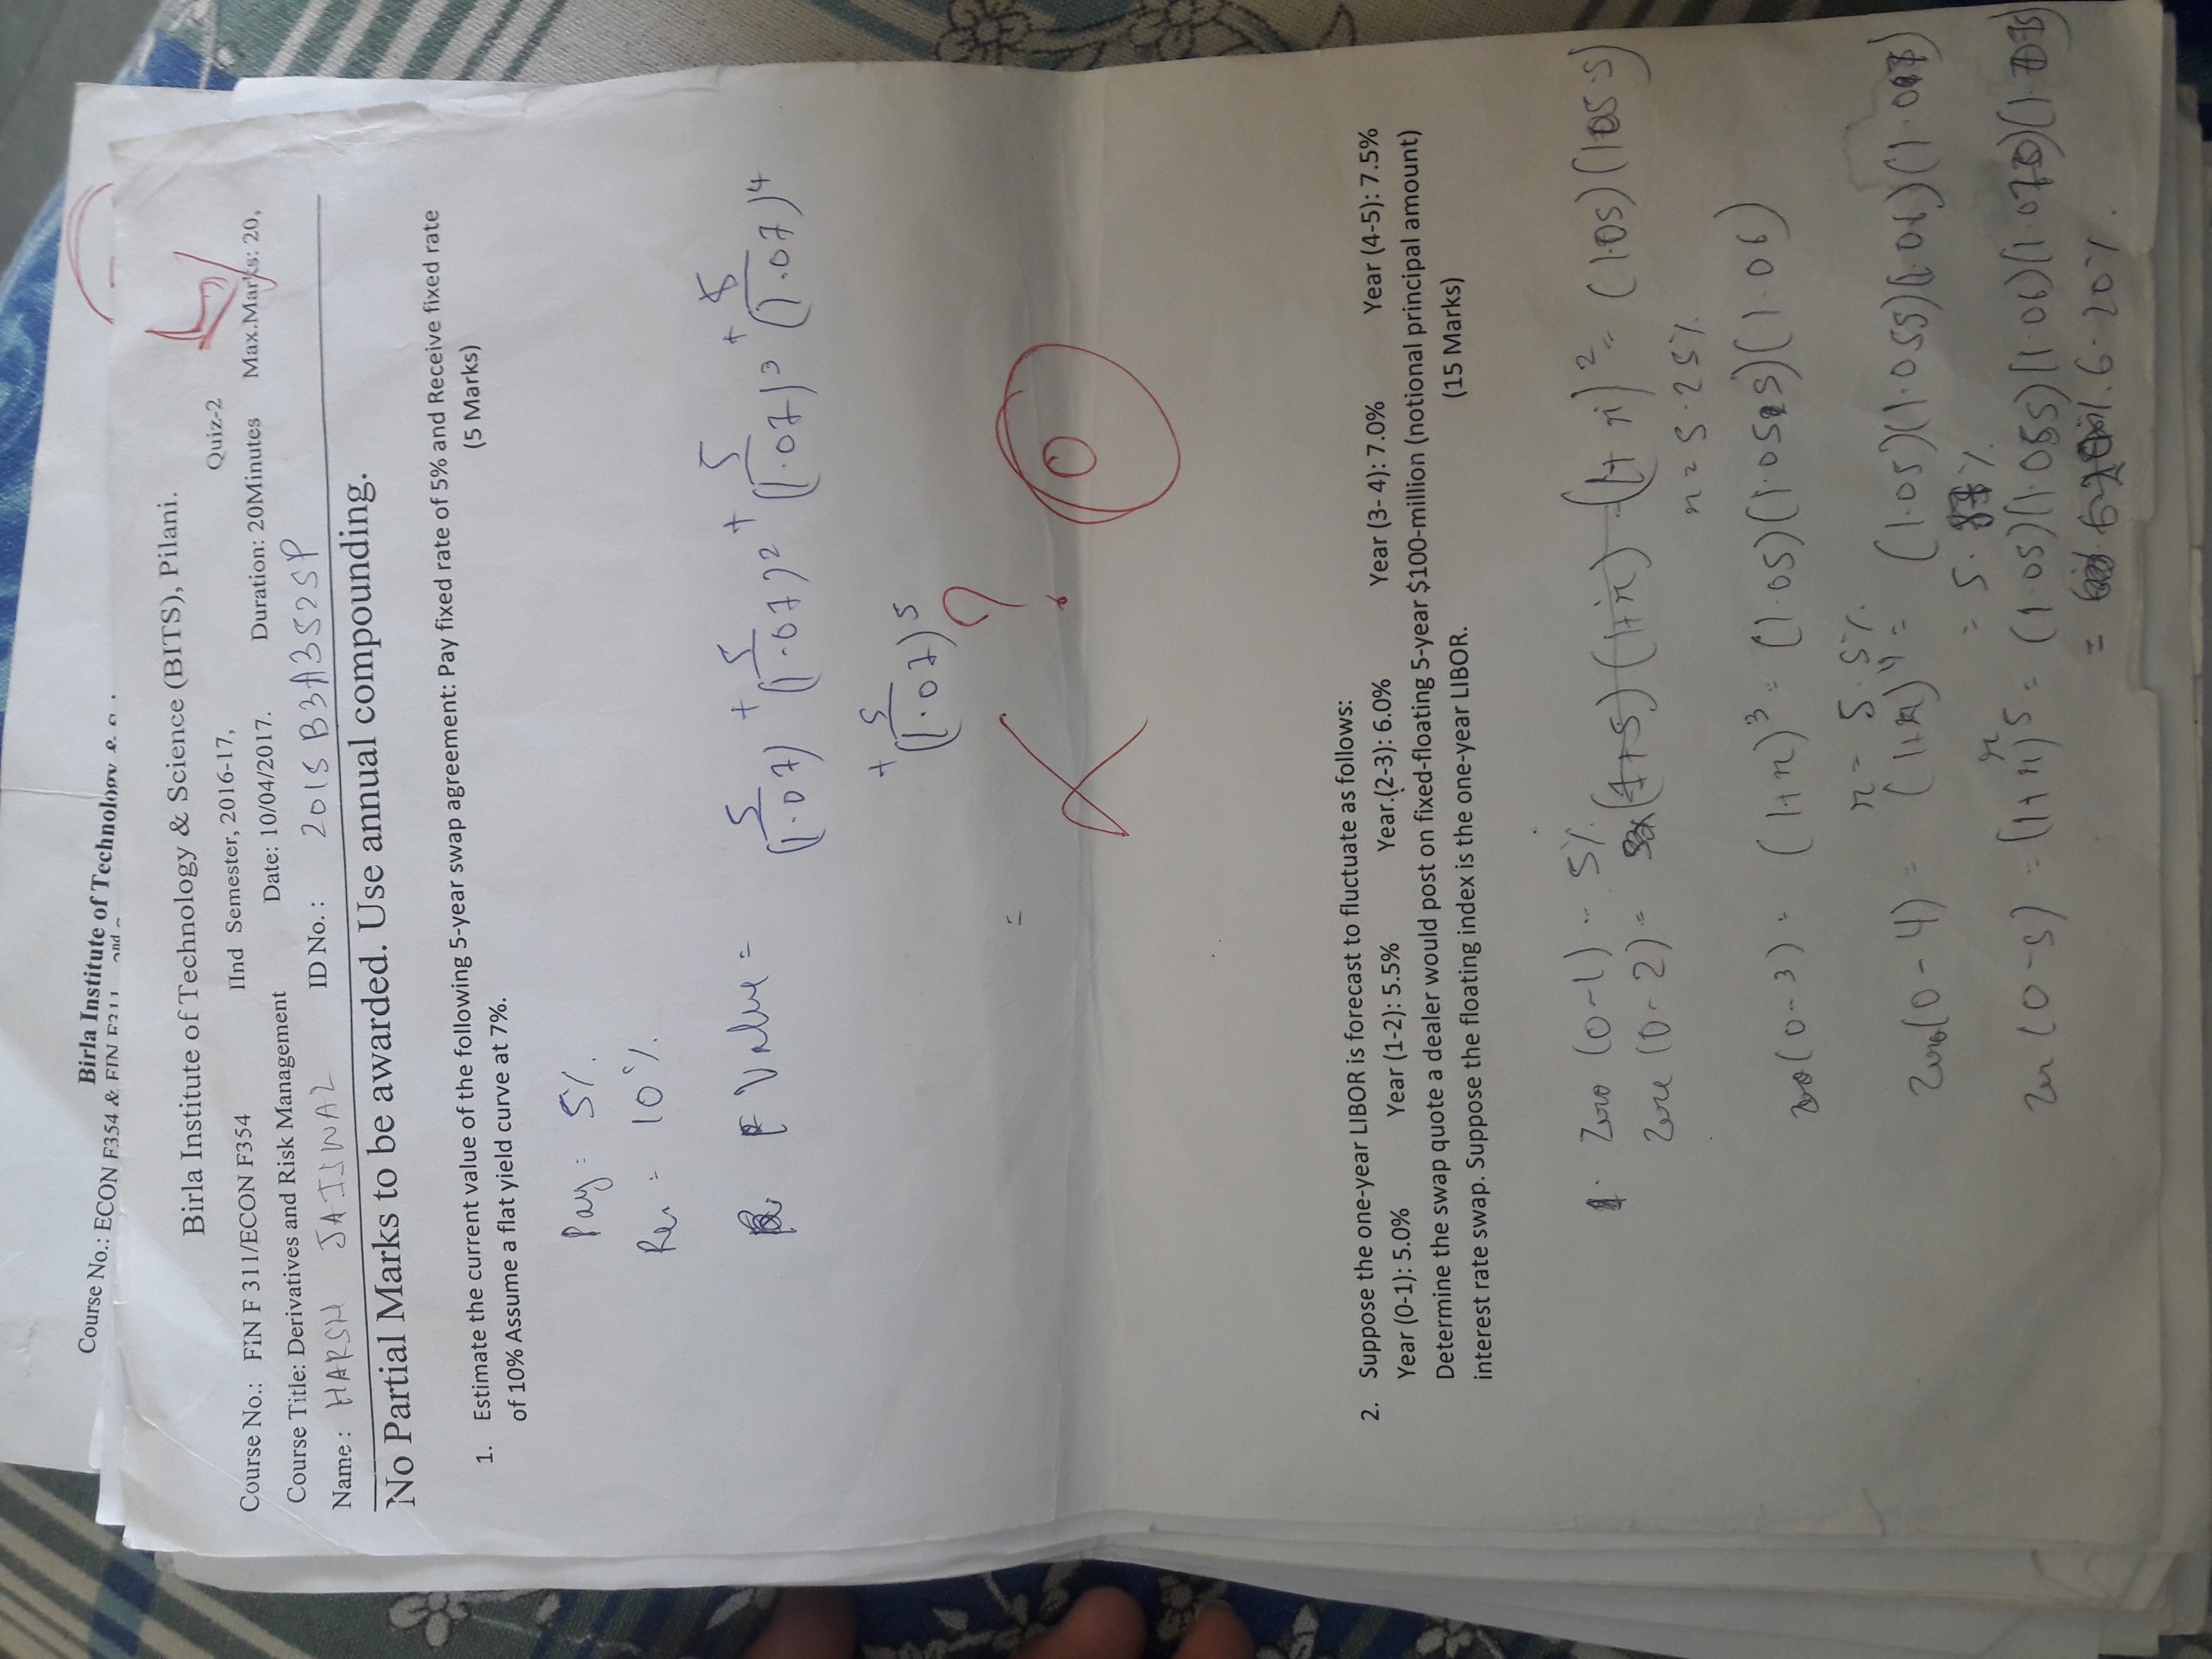 Birla Institute of Technology &
Course No.: ECON F354 & FIN F311
Birla Institute of Technology & Science (BITS), Pilani.
Quiz-2
Course No.: FIN F 311/ECON F354 IInd Semester, 2016-17,
Course Title: Derivatives and Risk Management Date: 10/04/2017. Duration: 20Minutes Max.Marks: 20,
Name : HARSH JAISWAL ID No.: 2015B3A3525P
No Partial Marks to be awarded. Use annual compounding.
1. Estimate the current value of the following 5-year swap agreement: Pay fixed rate of 5% and Receive fixed rate
of 10% Assume a flat yield curve at 7%. (5 Marks)
Pay = 5%.
Rec = 10%.
Value = 5/(1.07) + 5/(1.07)2 + 5/(1.07)3 + 5/(1.07)4
+ 5/(1.07)5
=
?
0
2. Suppose the one-year LIBOR is forecast to fluctuate as follows:
Year (0-1): 5.0% Year (1-2): 5.5% Year.(2-3): 6.0% Year (3- 4): 7.0% Year (4-5): 7.5%
Determine the swap quote a dealer would post on fixed-floating 5-year $100-million (notional principal amount)
interest rate swap. Suppose the floating index is the one-year LIBOR. (15 Marks)
1. Zero (0-1) = 5%.
Zero (0-2) = (1+r)2 = (1.05)(1.055)
r = 5.25%
Zero (0-3) = (1+r)3 = (1.05)(1.055)(1.06)
r = 5.5%.
Zero (0-4) = (1+r)4 = (1.05)(1.055)(1.06)(1.07)
r = 5.87%
Zero (0-5) = (1+r)5 = (1.05)(1.055)(1.06)(1.07)(1.075)
= 6.20%.